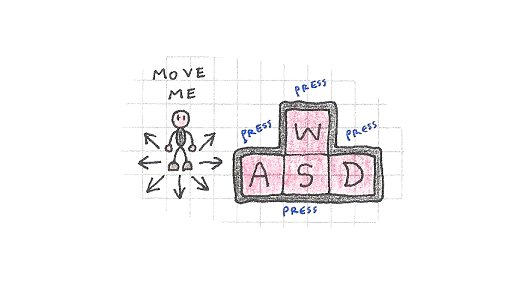 MOVE
ME
PRESS
PRESS
PRESS
W
A S D
PRESS